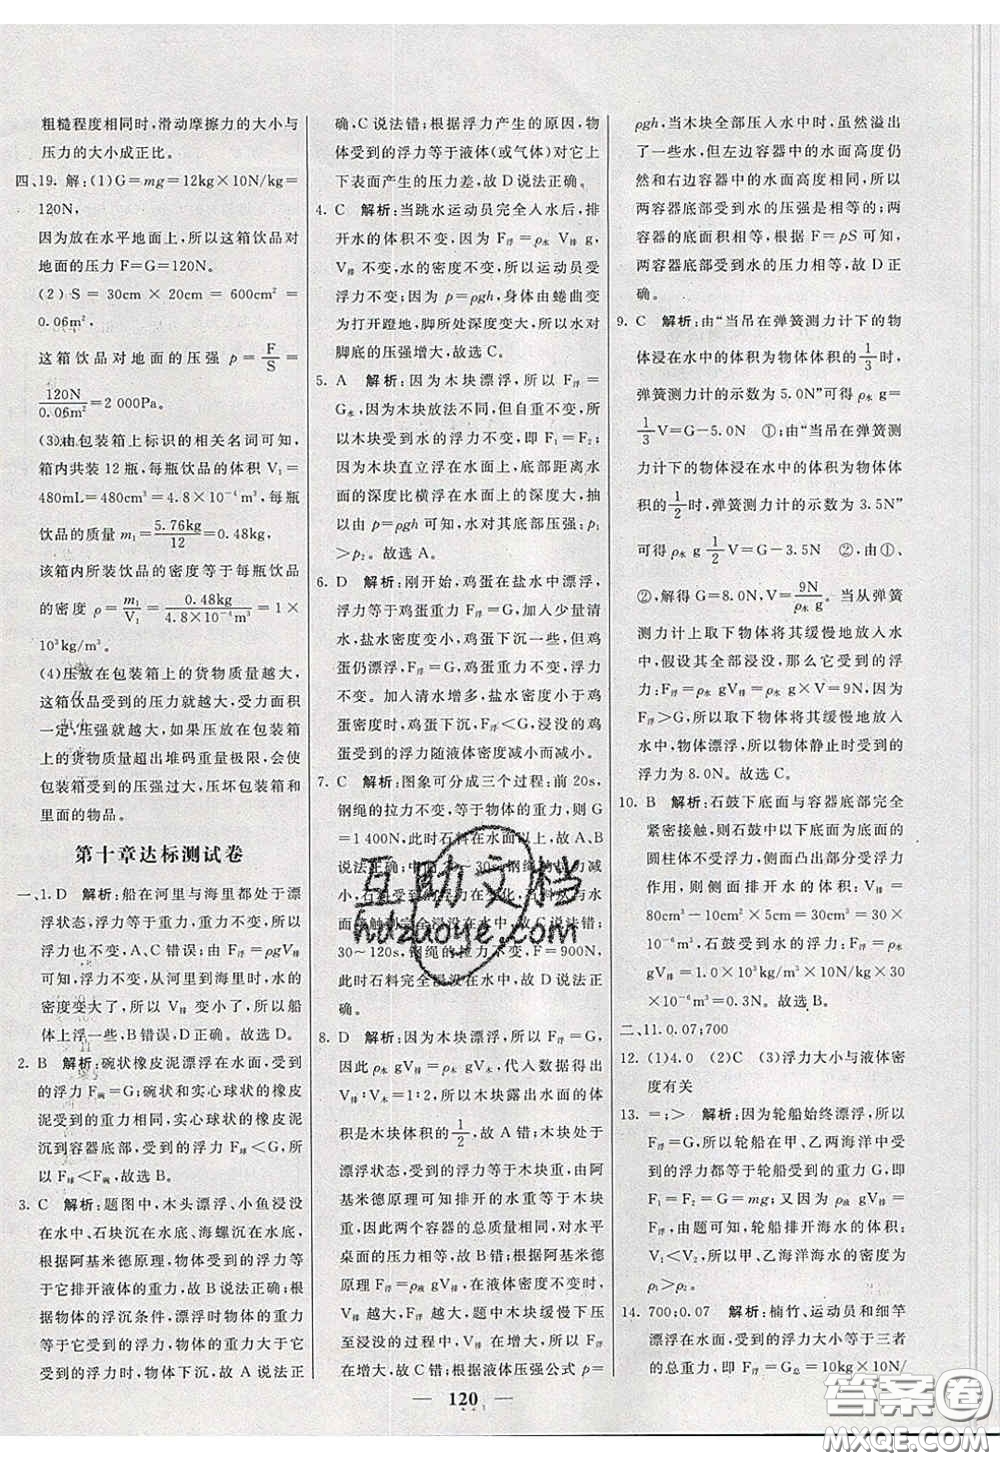 粗糙程度相同时,滑动摩擦力的大小与
压力的大小成正比。
四、19. 解:(1)G=mg=12kg×10N/kg=
120N,
因为放在水平地面上,所以这箱饮品对
对地面的压力 F=G=120N。
(2) S = 30cm × 20cm = 600cm² =
0.06m²,
这箱饮品对地面的压强 p=F/S=
120N/0.06m²=2 000Pa。
(3)由包装箱上标识的相关名词可知,
箱内共装 12 瓶,每瓶饮品的体积 V₁=
480mL=480cm³=4.8×10⁻⁴m³,每瓶
饮品的质量 m₁=5.76kg/12=0.48kg,
该箱内所装饮品的密度等于每瓶饮品
的密度 ρ=m₁/V₁=0.48kg/4.8×10⁻⁴m³=1×
10³kg/m³。
(4)压放在包装箱上的货物质量越大,
这箱饮品受到的压力就越大,受力面积
一定,压强就越大,如果压放在包装箱
上的货物质量超出堆码重量极限,会使
包装箱受到的压强过大,压坏包装箱和
里面的物品。
第十章达标测试卷
一、1. D 解析:船在河里与海里都处于漂
浮状态,浮力等于重力,重力不变,所以
浮力也不变,A、C 错误;由 F浮=ρgV排
可知,浮力不变,从河里到海里时,水的
密度变大了,所以 V排 变小了,所以船
体上浮一些,B 错误,D 正确。故选 D。
2. B 解析:碗状橡皮泥漂浮在水面,受到
的浮力 F碗=G;碗状和实心球状的橡皮
泥受到的重力相同,实心球状的橡皮泥
沉到容器底部,受到的浮力 F球<G,所
以 F球<F碗,故选 B。
3. C 解析:题图中,木头漂浮、小鱼浸没
在水中、石块沉在水底、海螺沉在水底,
根据阿基米德原理,物体受到的浮力等
于它排开液体的重力,故 B 说法正确;
根据物体的浮沉条件,漂浮时物体的重力
等于它受到的浮力,物体的重力大于它
受到的浮力,物体下沉,故 A 说法正
确,C 说法错;根据浮力产生的原因,物
体受到的浮力等于液体(或气体)对它
上下表面产生的压力差,故 D 说法正确。
4. C 解析:当跳水运动员完全入水后,排
开水的体积不变,因为 F浮=ρ水 V排 g,
V排 不变,水的密度不变,所以运动员受
浮力不变;因为 p=ρgh,身体由蜷曲变
为打开蹬地,脚所处深度变大,所以水对
脚底的压强增大,故选 C。
5. A 解析:因为木块漂浮,所以 F浮=
G木,因为木块放法不同,但自重不变,所
以木块受到水的浮力不变,即 F₁=F₂;
因为木块直立浮在水面上,底部距离水
面的深度比横浮在水面上的深度大,所
以由 p=ρgh 可知,水对其底部压强:p₁
>p₂。故选 A。
6. D 解析:刚开始,鸡蛋在盐水中漂浮,
浮力等于鸡蛋重力 F浮=G,加入少量清
水,盐水密度变小,鸡蛋下沉一些,但鸡
蛋仍漂浮,浮力等于鸡蛋重力,浮力不变。
加入清水增多,盐水密度小于鸡蛋
密度,鸡蛋下沉,F浮<G,浸没的鸡
蛋受的浮力随液体密度减小而减小。
7. C 解析:图象可分成三个过程:前 20s,
钢绳的拉力不变,等于物体的重力,所以 G
=1 400N,此时石料在水面以上,故 A、B
30~120s,钢绳的拉力不变,F=900N,
此时石料完全浸没在水中,故 D 说法正
确。
8. D 解析:因为木块漂浮,所以 F浮=G,
所以 ρ水 gV排=ρ木 gV木,代入数据得出
V排:V木=1:2,所以木块露出水面的体
积是木块体积的1/2,故 A 错;木块处于
漂浮状态,受到的浮力等于木块重,由阿
基米德原理可知排开的水重等于木块重
量,因此两个容器的总质量相同,对水平
桌面的压力相等,故 B 错;由阿基米德
原理 F浮=ρ液 gV排,液体密度不变时,
V排 越大,F浮 越大,题中木块缓慢下压
至浸没的过程中,V排 在增大,所以 F浮
在增大,故 C 错;根据液体压强公式 p=
ρgh,当木块全部压入水中时,虽然溢出
了一些水,但左边容器中的水面高度仍
然和右边容器中的水面高度相同,所以
两容器底部受到水的压强是相等的;两
容器的底面积相等,根据 F=pS 可知,
两容器底部受到水的压力相等,故 D 正
确。
9. C 解析:由“当吊在弹簧测力计下的物
体浸在水中的体积为物体体积的1/3时,
弹簧测力计的示数为 5.0N”可得 ρ水 g=
1/3V=G-5.0N ①;由“当吊在弹簧测
力计下的物体浸在水中的体积为物体体
积的1/2时,弹簧测力计的示数为 3.5N”
可得 ρ水 g 1/2V=G-3.5N ②,由①、
②,解得 G=8.0N,V=9N/ρ水 g。当从弹簧
测力计上取下物体将其缓慢地放入水
中,假设其全部浸没,那么它受到的浮
力:F浮=ρ水 gV排=ρ水 gV=9N,因为
F浮>G,所以取下物体将其缓慢地放入
水中,物体漂浮,所以物体静止时受到的
浮力为 8.0N。故选 C。
10. B 解析:石鼓下底面与容器底部完全
紧密接触,则石鼓中间部分与底面积等大的
圆柱体不受浮力,两侧凸出部分受浮力
作用,则侧面排开水的体积:V=
80cm³-10cm²×5cm=30cm³=30×
10⁻⁶m³,石鼓受到水的浮力:F浮=ρ水
gV排=1.0×10³kg/m³×10N/kg×30×
10⁻⁶m³=0.3N。故选 B。
二、11. 0.07;700
12. (1)4.0 (2)C (3)浮力大小与液体密
度有关
13. =;> 解析:因为轮船始终漂浮,浮力
F浮=G,所以轮船在甲、乙两海洋中受
到的浮力都等于轮船受到的重力 G,即
F₁=F₂=G=mg;又因为 F浮=ρ液
gV排,由题可知,轮船排开海水的体积:
V₁<V₂,所以甲、乙海洋海水的密度为
ρ₁>ρ₂。
14. 700;0.07 解析:楠竹、运动员和细竿
漂浮在水面,受到的浮力大小等于三者
的总重力,即 F浮=G总=10kg×10N/
120
互助文档
huzuoye.com
答案圈
MXQE.COM